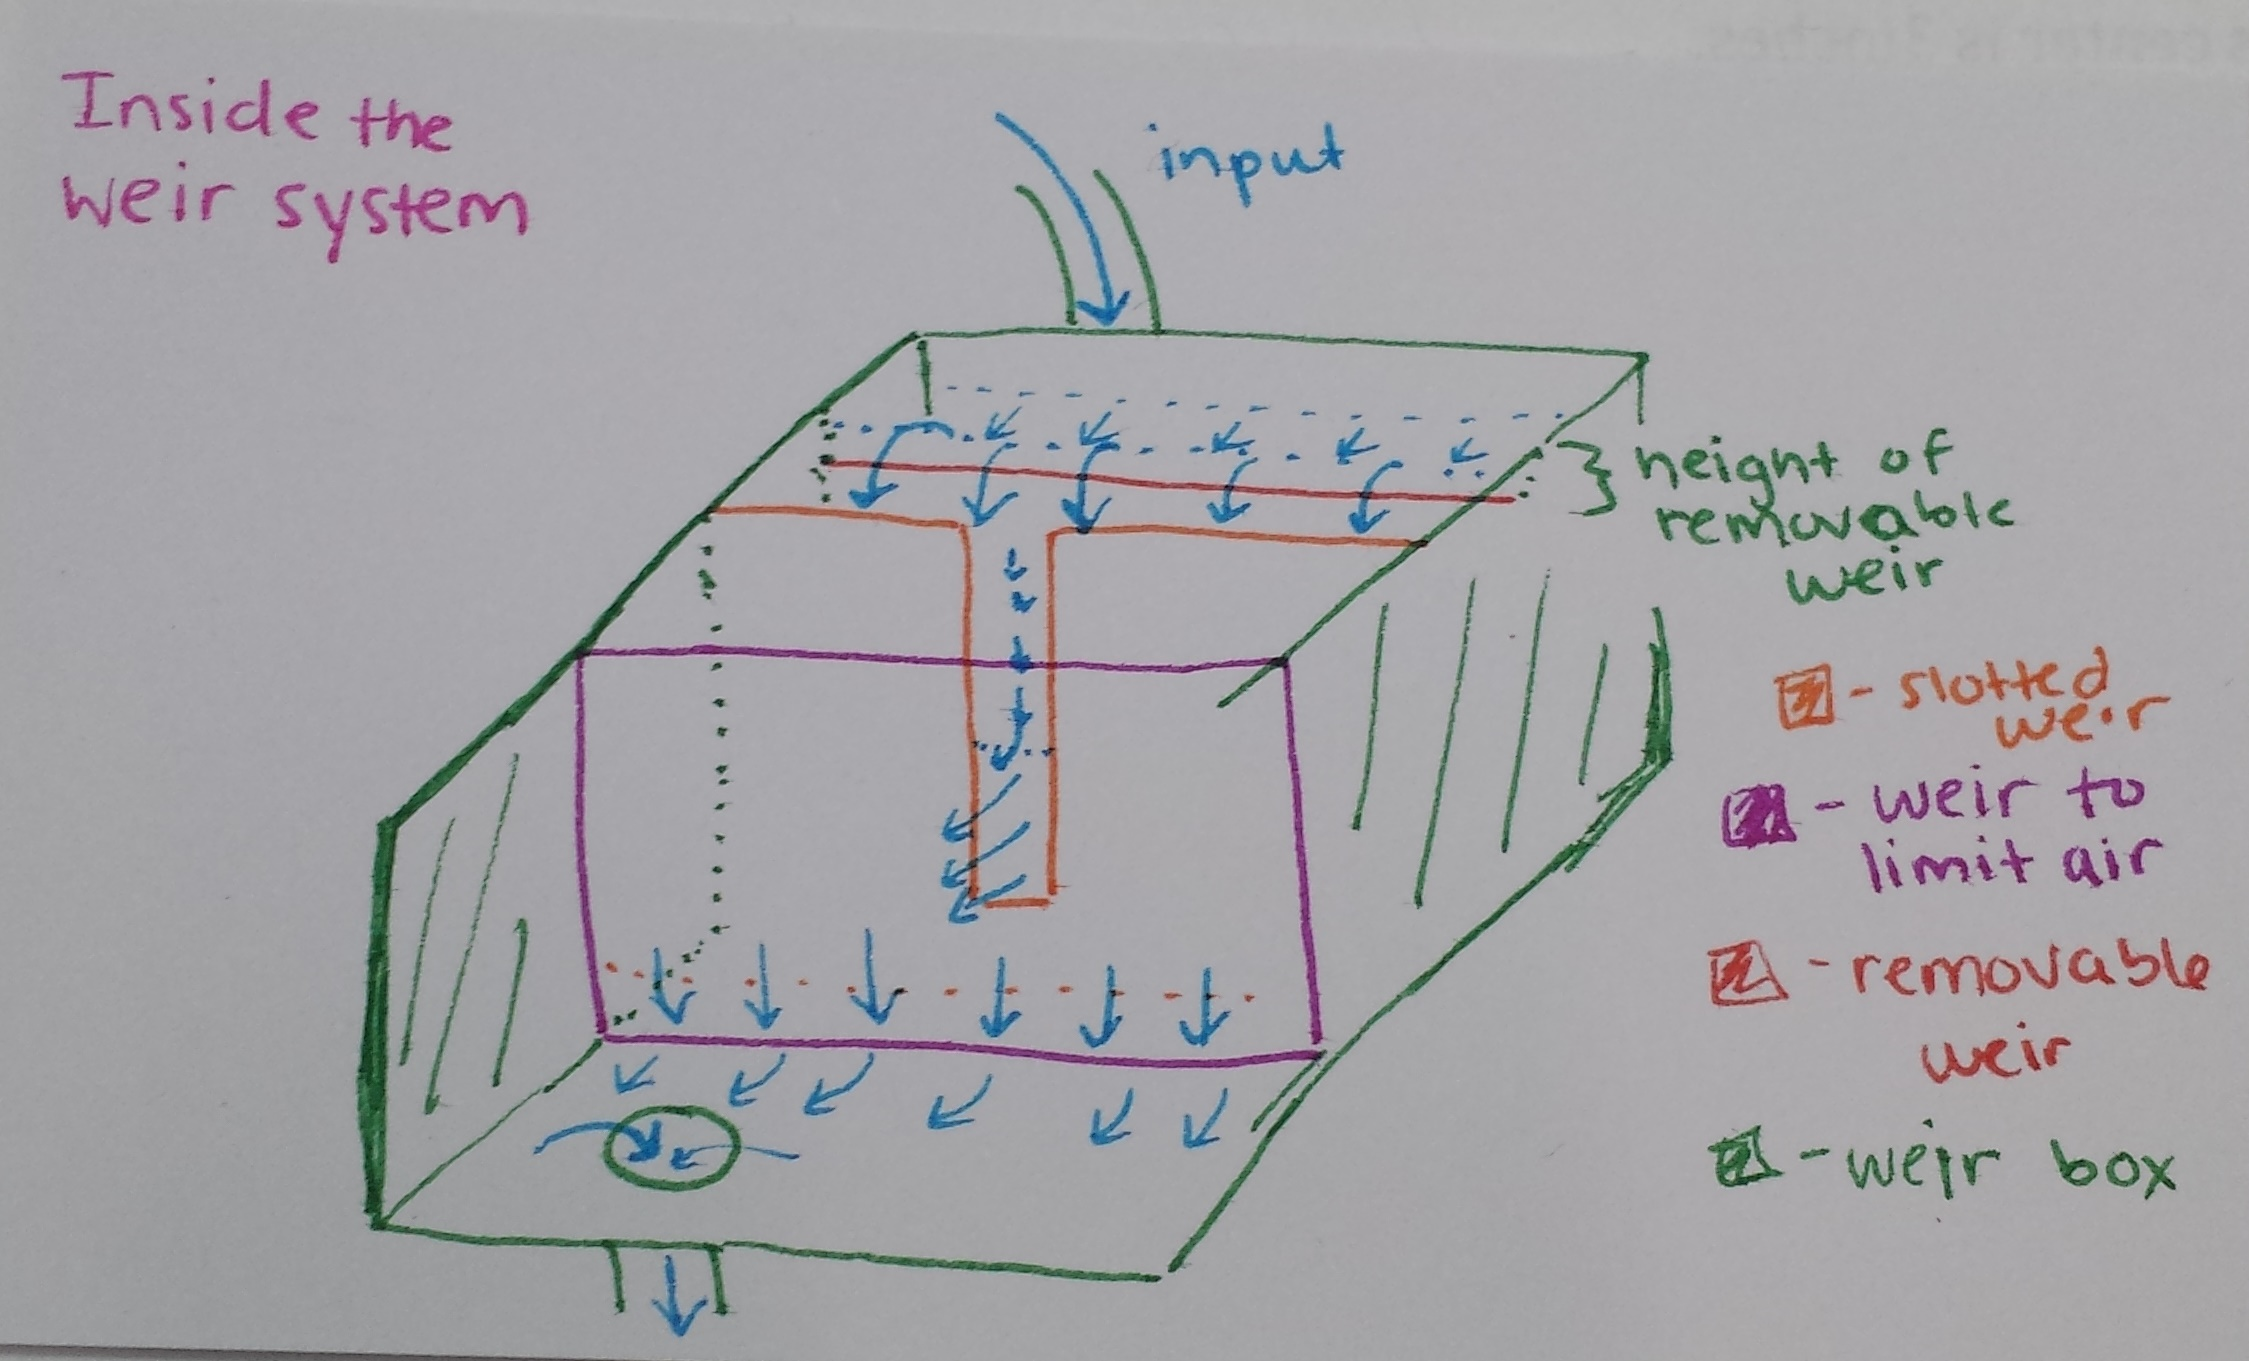 Inside the
weir system
input
height of
removable
weir
- slotted
weir
- weir to
limit air
- removable
weir
- weir box